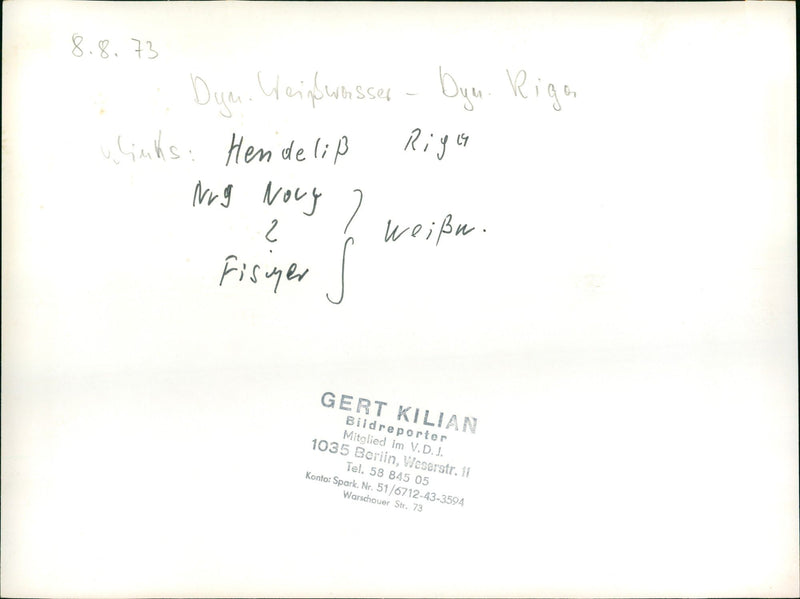 8.8.73
Dyn. Weißwasser - Dyn. Riga
v. links: Hendeliß Riga
Nrg Novy
? Weißw.
Fischer
GERT KILIAN
Bildreporter
Mitglied im V.D.J.
1035 Berlin, Weserstr. 11
Tel. 58 845 05
Konto: Spark. Nr. 51/6712-43-3594
Warschauer Str. 73